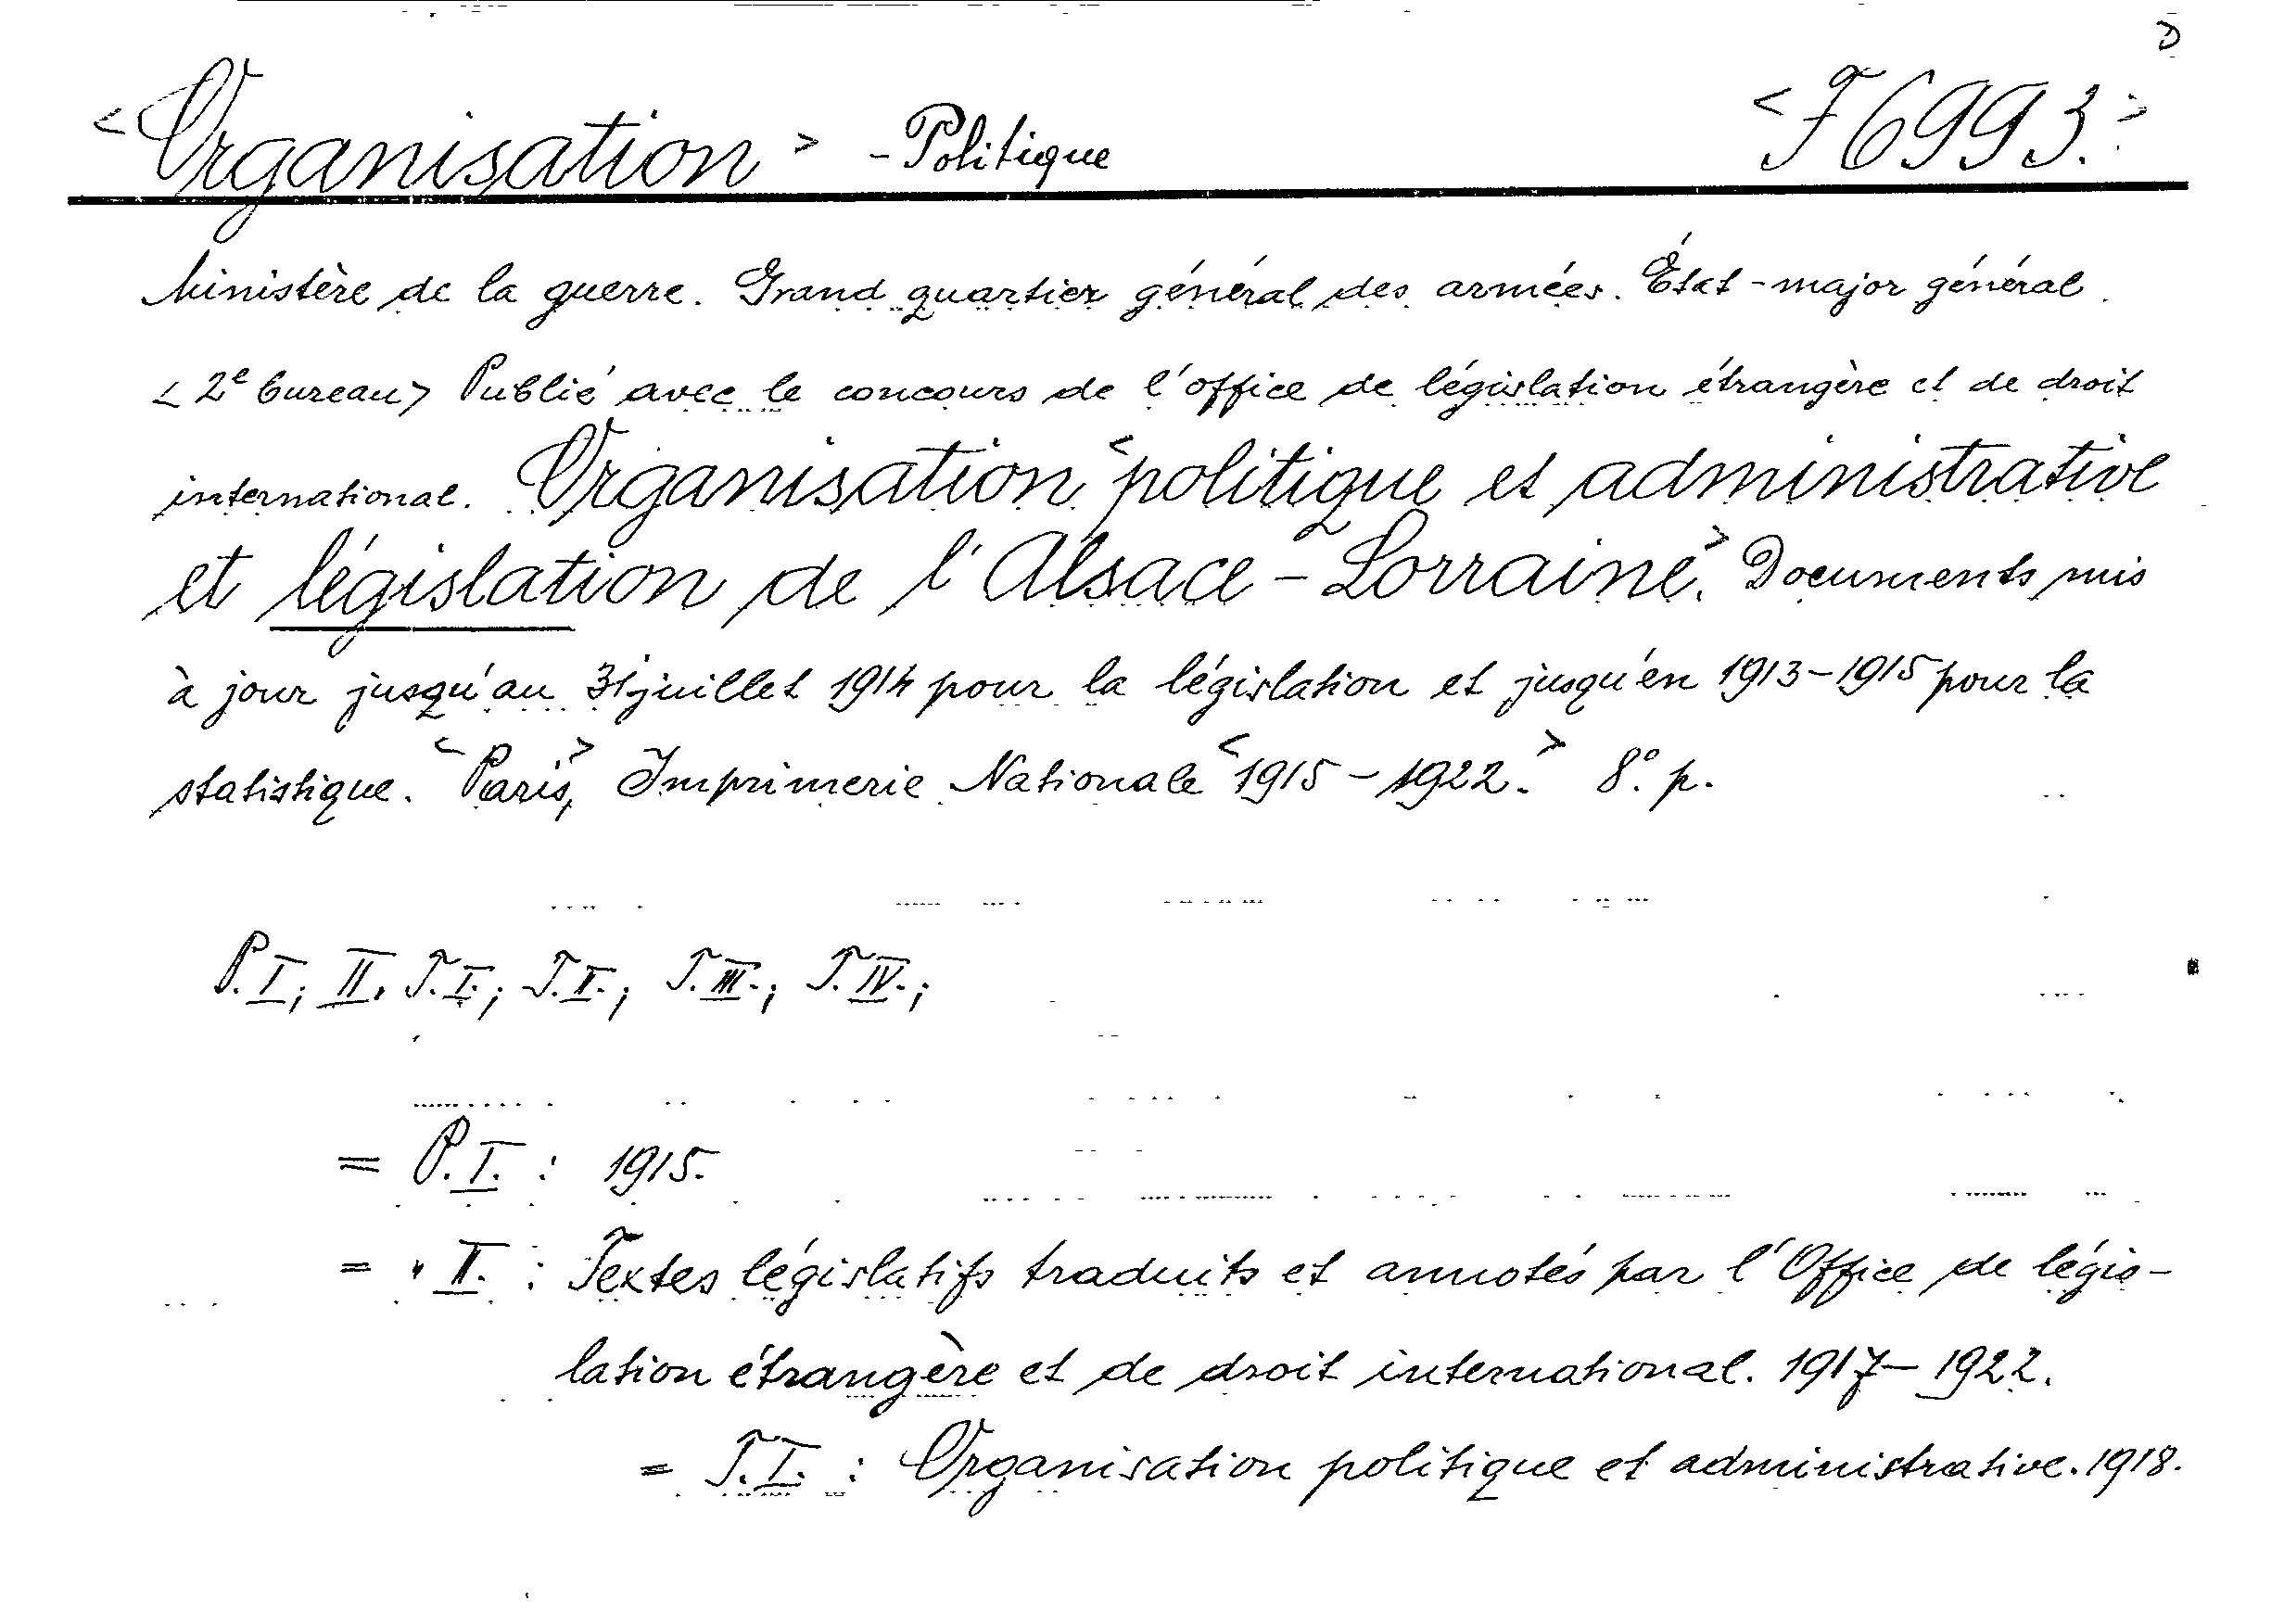 D
<Organisation> - Politique <F 6993.>
Ministère de la guerre. Grand quartier général des armées. État-major général.
<2e bureau> Publié avec le concours de l'office de législation étrangère et de droit
international. Organisation <politique et administrative
et législation de l'Alsace-Lorraine.> Documents mis
à jour jusqu'au 31 juillet 1914 pour la législation et jusqu'en 1913-1915 pour la
statistique. <Paris,> Imprimerie Nationale <1915-1922.> 8°. p.
P. I; II. T. I.; T. II.; T. III.; T. IV.;
= P. I. : 1915.
= " II. : Textes législatifs traduits et annotés par l'Office de légis-
lation étrangère et de droit international. 1917-1922.
= T. I. : Organisation politique et administrative. 1918.